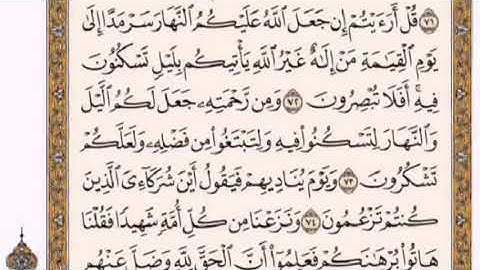 ٧١ قُلْ أَرَءَيْتُمْ إِن جَعَلَ ٱللَّهُ عَلَيْكُمُ ٱلنَّهَارَ سَرْمَدًا إِلَىٰ
يَوْمِ ٱلْقِيَٰمَةِ مَنْ إِلَٰهٌ غَيْرُ ٱللَّهِ يَأْتِيكُم بِلَيْلٍ تَسْكُنُونَ
فِيهِ ۖ أَفَلَا تُبْصِرُونَ ٧٢ وَمِن رَّحْمَتِهِۦ جَعَلَ لَكُمُ ٱلَّيْلَ
وَٱلنَّهَارَ لِتَسْكُنُوا۟ فِيهِ وَلِتَبْتَغُوا۟ مِن فَضْلِهِۦ وَلَعَلَّكُمْ
تَشْكُرُونَ ٧٣ وَيَوْمَ يُنَادِيهِمْ فَيَقُولُ أَيْنَ شُرَكَآءِىَ ٱلَّذِينَ
كُنتُمْ تَزْعُمُونَ ٧٤ وَنَزَعْنَا مِن كُلِّ أُمَّةٍ شَهِيدًا فَقُلْنَا
هَاتُوا۟ بُرْهَٰنَكُمْ فَعَلِمُوٓا۟ أَنَّ ٱلْحَقَّ لِلَّهِ وَضَلَّ عَنْهُم